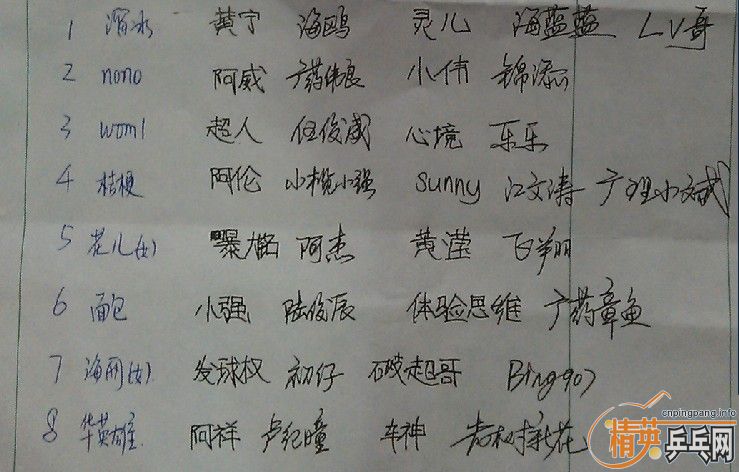 1 溜冰 黄宁 海鸥 灵儿 海蓝蓝 LV哥
2 nono 阿威 广药伟良 小伟 锦添
3 woml 超人 伍俊威 心境 乐乐
4 桔梗 阿伦 小榄小强 sunny 江文涛 广理小斌
5 花儿(女) 阿杰 黄滢 百羽
6 面包 小强 陆俊辰 体验思维 广药章鱼
7 海网(女) 发球权 初仔 破超哥 Bing907
8 华英雄 阿祥 卢纪瞳 车神 老树新花
cnpingpang.info
精英乒乓网